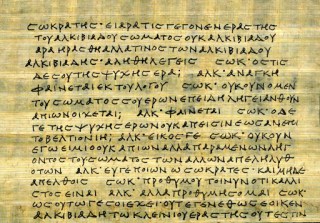 ΣΩΚΡΑΤΗΣ·ΕΙΑΡΑΤΙΣΓΕΓΟΝΕΝΕΡΑΣΤΗΣ
ΤΟΥΑΛΚΙΒΙΑΔΟΥΣΩΜΑΤΟΣΟΥΚΑΛΚΙΒΙΑΔΟΥ
ΑΡΑΗΡΑΣΘΗΑΛΛΑΤΙΝΟΣΤΩΝΑΛΚΙΒΙΑΔΟΥ
ΑΛΚΙΒΙΑΔΗΣ·ΑΛΗΘΗΛΕΓΕΙΣ ΣΩΚ·ΟΣΤΙΣ
ΔΕΣΟΥΤΗΣΨΥΧΗΣΕΡΑ; ΑΛΚ·ΑΝΑΓΚΗ
ΦΑΙΝΕΤΑΙΕΚΤΟΥΛΟΓΟΥ ΣΩΚ·ΟΥΚΟΥΝΟΜΕΝ
ΤΟΥΣΩΜΑΤΟΣΣΟΥΕΡΩΝΕΠΕΙΔΗΛΗΓΕΙΑΝΘΟΥΝ
ΑΠΙΩΝΟΙΧΕΤΑΙ; ΑΛΚ·ΦΑΙΝΕΤΑΙ ΣΩΚ·ΟΔΕ
ΓΕΤΗΣΨΥΧΗΣΕΡΩΝΟΥΚΑΠΕΙΣΙΝΕΩΣΑΝΕΠΙ
ΤΟΒΕΛΤΙΟΝΙΗ; ΑΛΚ·ΕΙΚΟΣΓΕ ΣΩΚ·ΟΥΚΟΥΝ
ΕΓΩΕΙΜΙΟΟΥΚΑΠΙΩΝΑΛΛΑΠΑΡΑΜΕΝΩΝΛΗΓ
ΟΝΤΟΣΤΟΥΣΩΜΑΤΟΣΤΩΝΑΛΛΩΝΑΠΕΛΗΛΥΘ
ΟΤΩΝ ΑΛΚ·ΕΥΓΕΠΟΙΩΝΩΣΩΚΡΑΤΕΣ·ΚΑΙΜΗΔΕ
ΑΠΕΛΘΟΙΣ ΣΩΚ·ΠΡΟΘΥΜΟΥΤΟΙΝΥΝΟΤΙΚΑΛΛΙ
ΣΤΟΣΕΙΝΑΙ ΑΛΚ·ΑΛΛΑΠΡΟΘΥΜΗΣΟΜΑΙ ΣΩΚ·
ΩΣΟΥΤΩΓΕΣΟΙΕΧΕΙΟΥΤΕΓΕΝΕΘΩΣΕΟΙΚΕΝ
ΑΛΚΙΒΙΑΔΗΤΩΚΛΕΙΝΙΟΥΕΡΑΣΤΗΣΟΥΤΕΣΤΙΝ